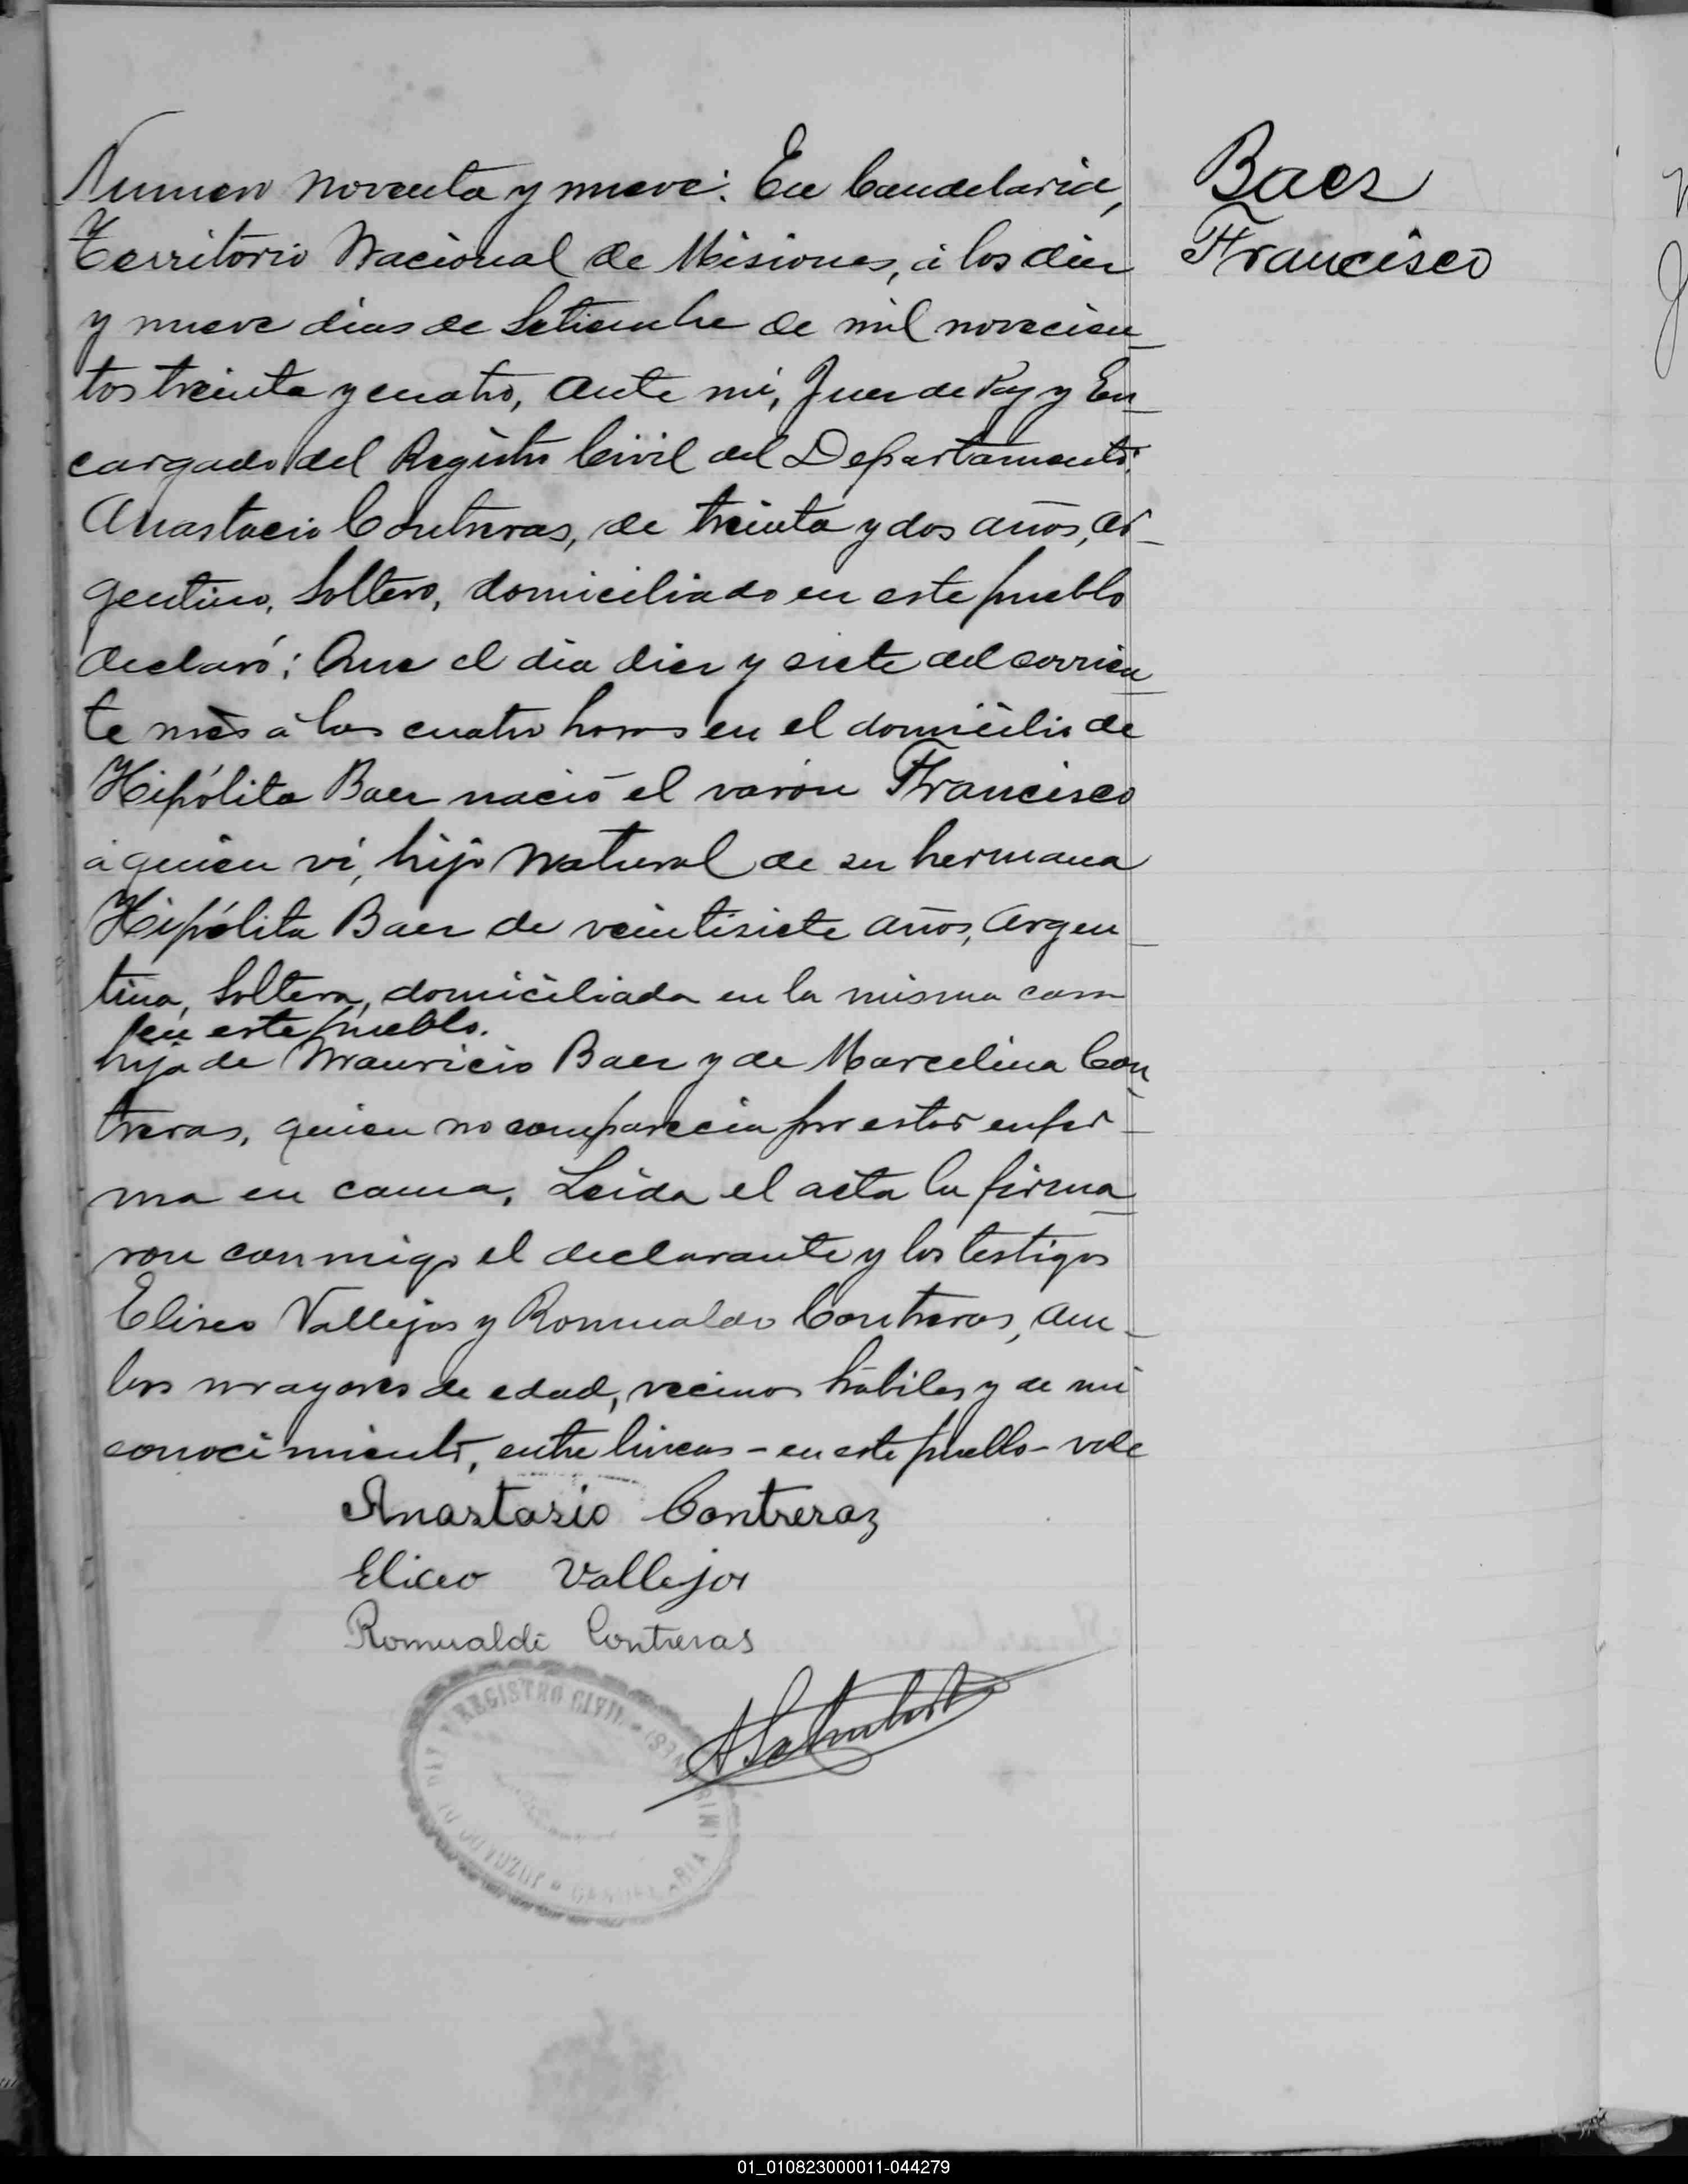 Baez
Francisco
Numero noventa y nueve: En Candelaria,
Territorio Nacional de Misiones, á los diez
y nueve dias de Setiembre de mil novecien_
tos treinta y cuatro, ante mi, Juez de Paz y En_
cargado del Registro Civil del Departamento:
Anastacio Contreras, de treinta y dos años, ar_
gentino, soltero, domiciliado en este pueblo
declaró: Que el dia diez y siete del corrien_
te mes á las cuatro horas en el domicilio de
Hipólita Baez nació el varón Francisco
á quien vi, hijo natural de su hermana
Hipólita Baez de veintisiete años, argen_
tina, soltera, domiciliada en la misma casa
en este pueblo.
hija de Mauricio Baez y de Marcelina Con_
treras, quien no comparecía por estar enfer_
ma en cama. Leida el acta la firma_
ron conmigo el declarante y los testigos
Eliseo Vallejos y Romualdo Contreras, am_
bos mayores de edad, vecinos hábiles y de mi
conocimiento, entre lineas - en este pueblo - vale
Anastasio Contreraz
Eliceo Vallejos
Romualdi Contreras
REGISTRO CIVIL
JUZGADO DE
01_010823000011-044279